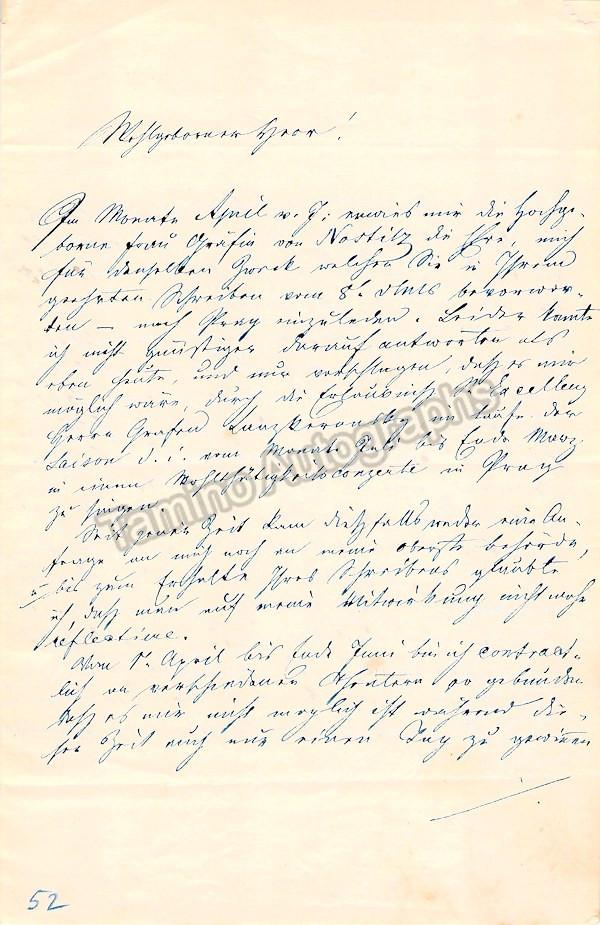 Wohlgeborner Herr!
Im Monate April v. J: erwies mir die Hochge-
borne Frau Gräfin von Nostitz die Ehre, mich
für denselben Zweck welchen Sie in Ihrem
geehrten Schreiben vom 8t. dMts bevorwor-
ten – nach Prag einzuladen. Leider konnte
ich nicht günstiger darauf antworten als
eben heute, und nur vorschlagen, daß es mir
möglich wäre, durch die Erlaubniß Sr Excellenz
Herrn Grafen Lanzkoronsky im Laufe der
Saison d. i. vom Monate Juli bis Ende März
in einem Wohlthätigkeitsconzerte in Prag
zu singen.
Seit jener Zeit kam dießfalls weder eine An-
frage an mich noch an meine oberste Behörde,
u bis zum Erhalte Ihres Schreibens glaubte
ich, daß man auf meine Mitwirkung nicht mehr
reflectire.
Vom 1t. April bis Ende Juni bin ich contract-
lich an verschiedenen Theatern so gebunden
daß es mir nicht möglich ist während die-
ser Zeit auch nur einen Tag zu gewinnen
52
Tamino Autographs